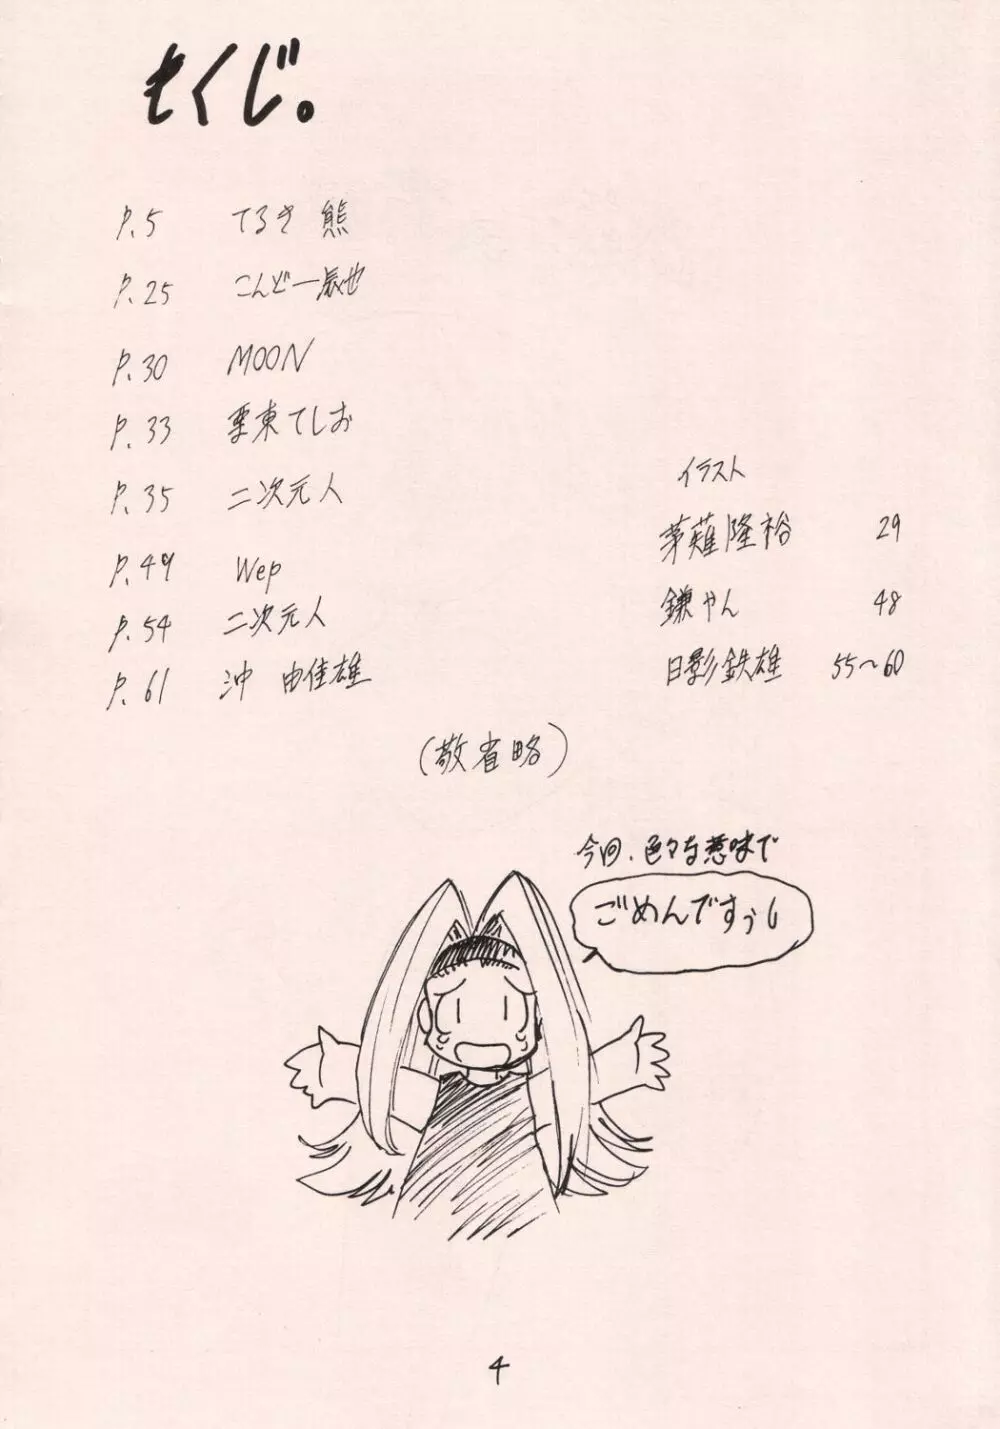 もくじ。
P.5 てるき熊
P.25 こんどー辰也
P.30 MOON
P.33 栗東てしお
P.35 二次元人
P.49 Wep
P.54 二次元人
P.61 沖 由佳雄
イラスト
茅薙隆裕 29
鎌やん 48
日影鉄雄 55~60
(敬省略)
今回、色々な意味で
ごめんですぅし
4